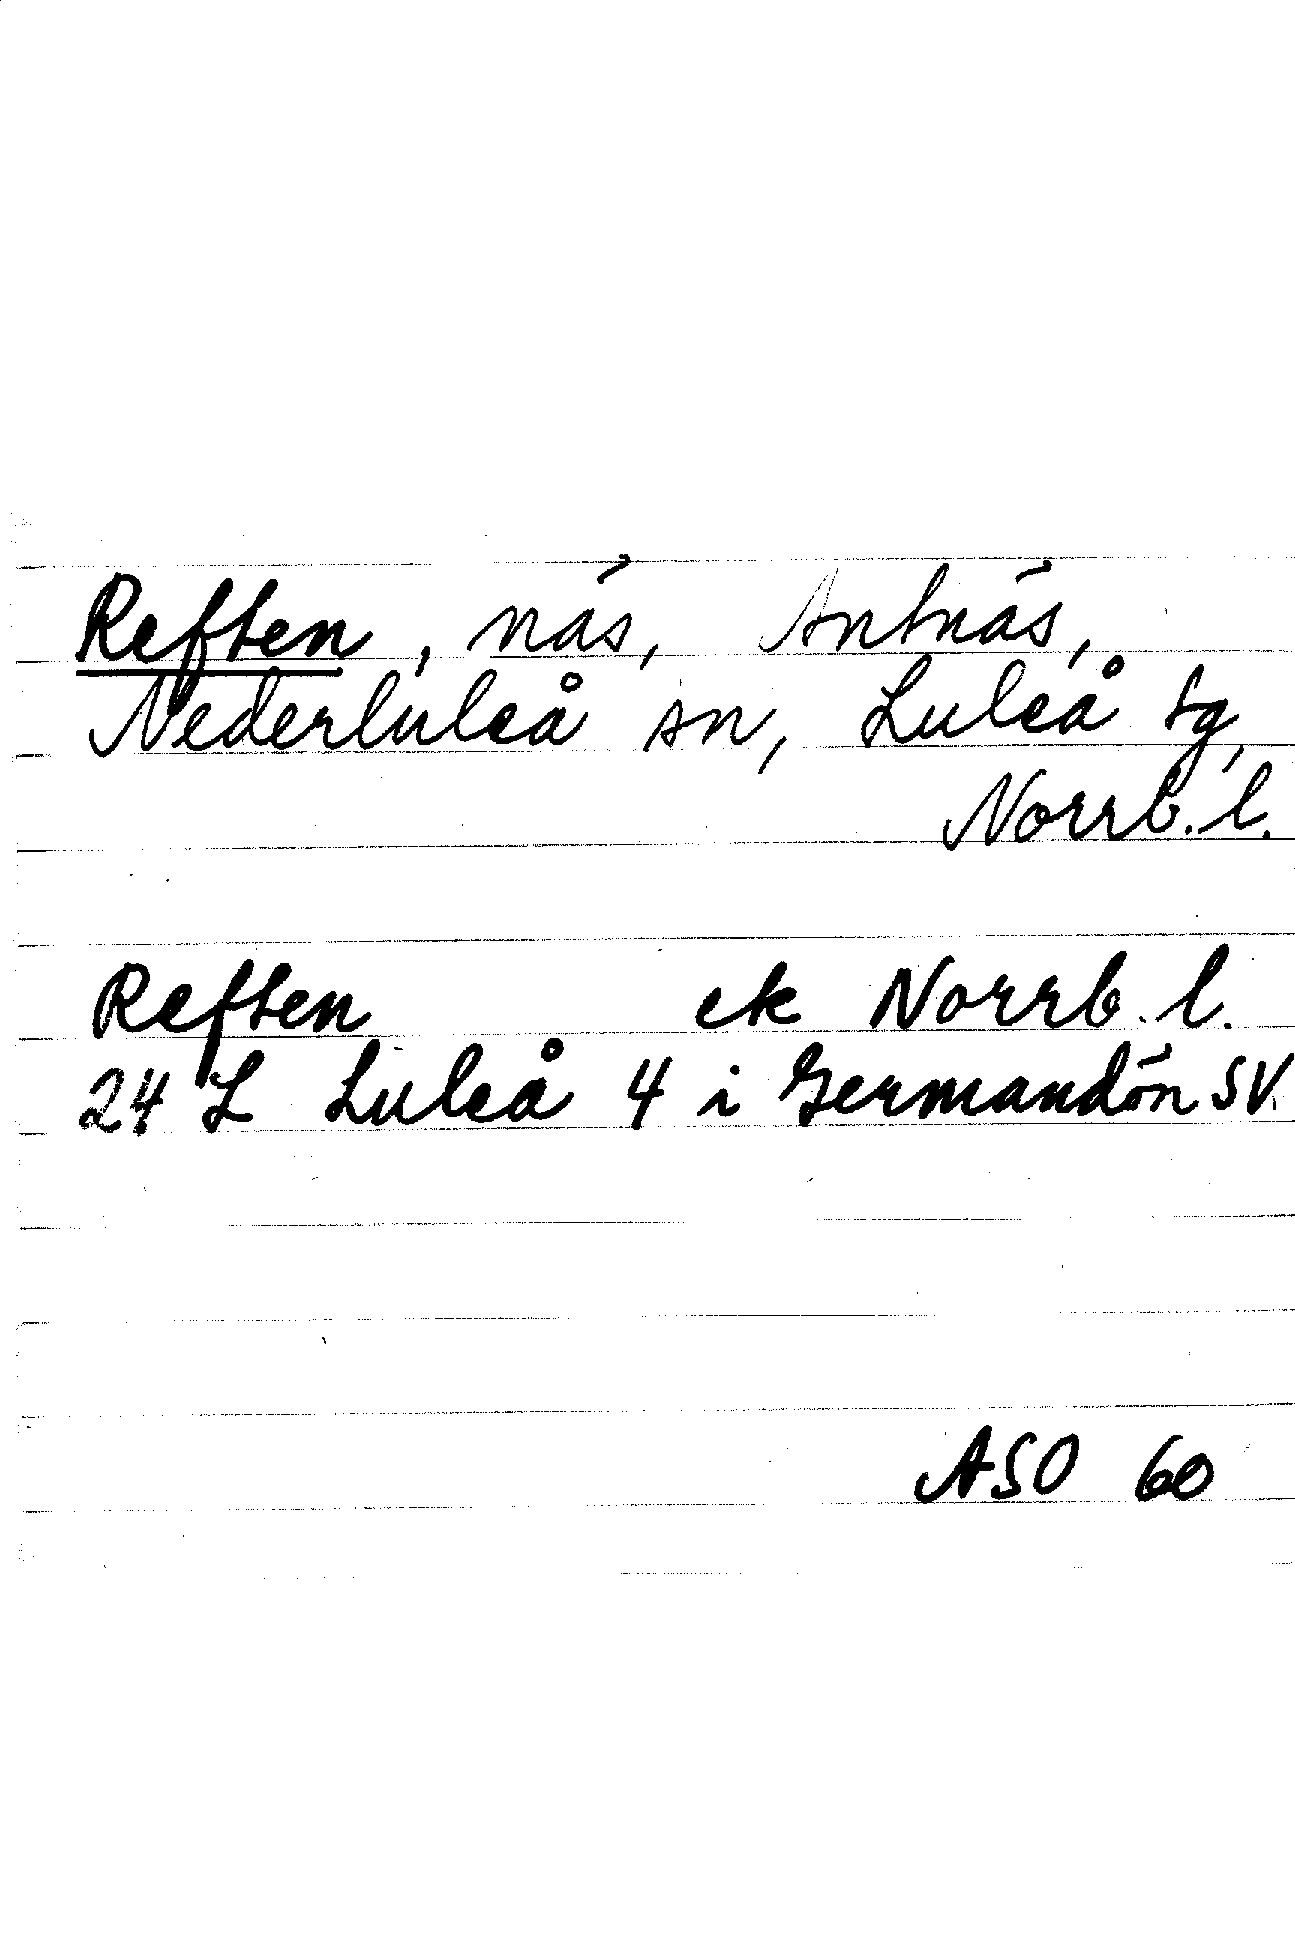 Reften, näs, Antnäs,
Nederluleå sn, Luleå tg,
Norrb. l.
Reften ek Norrb. l.
24 L Luleå 4 i Germandön SV.
ASO 60